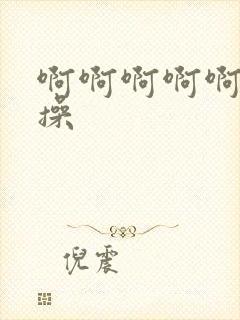 啊啊啊啊啊
操
倪震